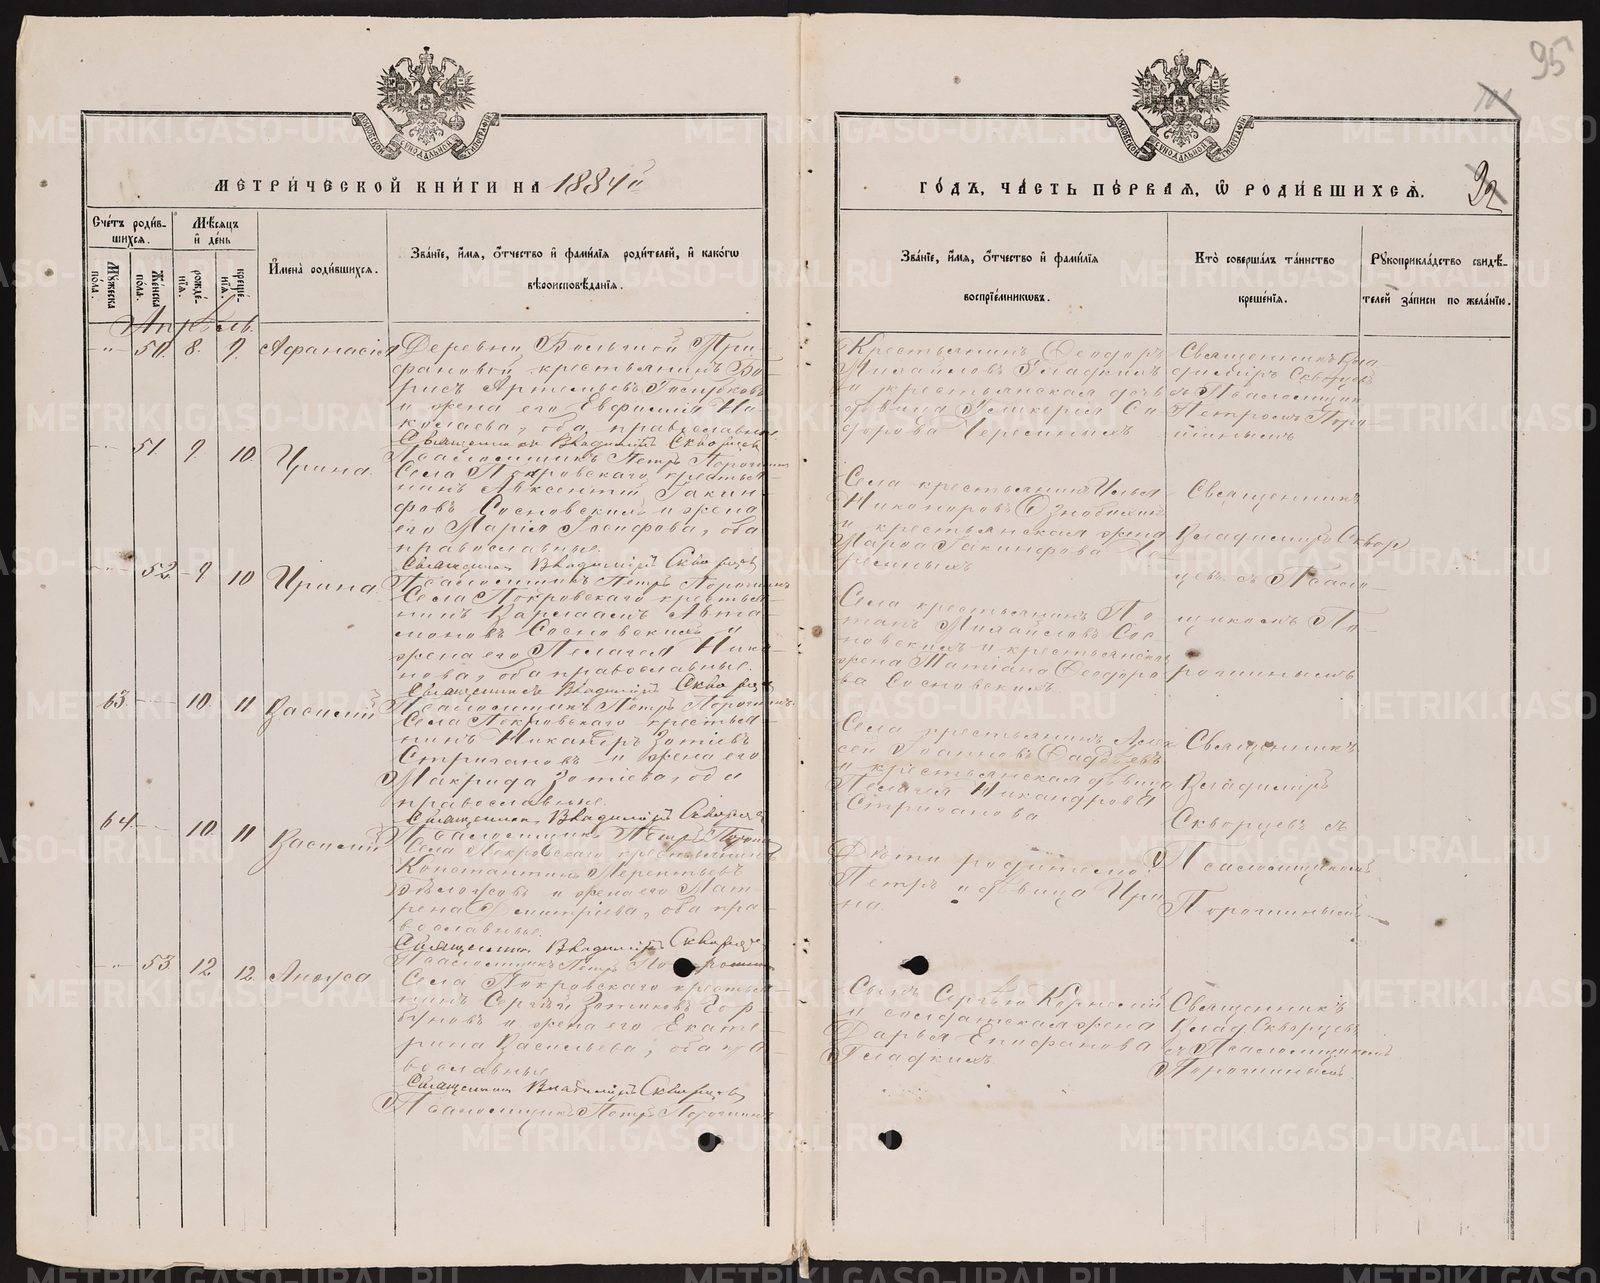 95
101
МЕТРИЧЕСКОЙ КНИГИ НА 1884й
ГОДЪ, ЧАСТЬ ПЕРВАЯ, Ѿ РОДИВШИХСЯ.
32
Счетъ родив-
шихся.
Мѣсяцъ
и день
Мужеска
пола.
Женска
пола.
рожде-
нія.
креще-
нія.
Имена родившихся.
Званіе, имя, отчество и фамилія родителей, и какогѡ
вѣроисповѣданія.
Званіе, имя, отчество и фамилія
воспріемникѡвъ.
Кто совершалъ таинство
крещенія.
Рукоприкладство свидѣ-
телей записи по желанію.
Апрѣль.
50. 8. 9. Афанасія
Деревни Большой Три-
фановой крестьянинъ Бо-
рисъ Артемьевъ
и жена его Евфимія Ни-
колаева, оба православные
Священникъ Владиміръ Скворцевъ
Псаломщикъ Петръ Порошинъ
Крестьянинъ Ѳеодоръ
Михайловъ Гладкихъ
и крестьянская дочь
дѣвица Гликерія Си-
дорова Черемныхъ
Священникъ Вла-
диміръ Скворцевъ
съ Псаломщик.
Петромъ Поро-
шинымъ
51 9. 10. Ирина.
Села Покровскаго крестья-
нинъ Авксентій Іакин-
фовъ Сосновскихъ и жена
его Марія Іосифова, оба
православные.
Священник Владиміръ Скворцевъ
Псаломщикъ Петръ Порошинъ
Села крестьянинъ Илья
Никаноровъ Ознобихинъ
и крестьянская жена
Марѳа Іакинфова Че-
ремныхъ
Священникъ
Владиміръ Сквор
цевъ съ Псало-
52 9 10 Ирина
Села Покровскаго крестья-
нинъ Варлаамъ Авта-
моновъ Сосновскихъ и
жена его Пелагея Ника-
нова, оба православные.
Священникъ Владиміръ Скворцевъ
Псаломщикъ Петръ Порошинъ.
Села крестьянинъ По-
тапъ Михайловъ Сос-
новскихъ и крестьянская
жена Татіана Ѳеодоро-
ва Сосновскихъ
щикомъ По-
рошинымъ
63. 10. 11 Василій
Села Покровскаго крестья-
нинъ Никандръ Зотіевъ
Стригановъ и жена его
Макрида Зотіева, оба
православные.
Священникъ Владиміръ Скворцев
Псаломщикъ Петръ Порошин
Села крестьянинъ Алек
сей Іоанновъ Ѳаддеевъ
и крестьянская дѣвица
Пелагея Никандрова
Стриганова
Священникъ
Владиміръ
Скворцевъ съ
64. 10. 11 Василій
Села Покровскаго крестьянинъ
Константинъ Терентьевъ
и жена его Мат-
рена Дмитріева, оба пра-
вославные.
Священник Владиміръ Скворцев
Псаломщикъ Петръ Порошинъ
Дѣти родителей
Петръ и дѣвица Ири
на.
Псаломщикомъ
Порошинымъ
53 12. 12. Анѳуса
Села Покровскаго крестья-
нинъ Сергѣй Зотиковъ Гор-
буновъ и жена его Екате-
рина Васильева, оба пра-
вославные
Священник Владиміръ Скворцевъ
Псаломщикъ Петръ Порошинъ
Сынъ Сергѣя Корнелій
и солдатская жена
Дарья Епифанова
Гладкихъ
Священникъ
Влад. Скворцевъ
съ Псаломщикомъ
Порошинымъ
METRIKI.GASO-URAL.RU